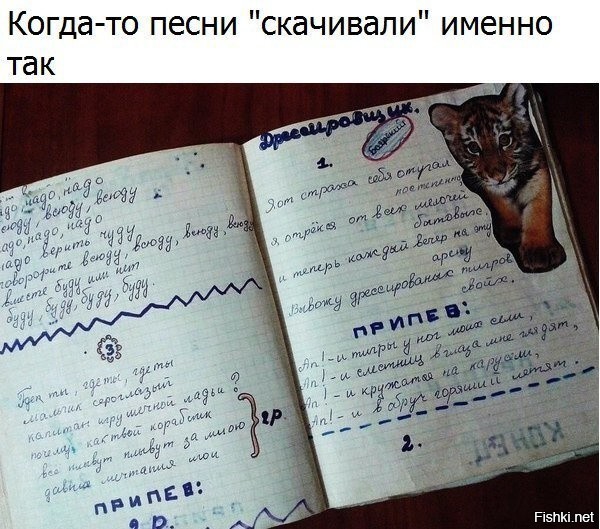 Когда-то песни "скачивали" именно
так
надо, надо
всюду, всюду, всюду
надо, надо, надо
надо верить чуду
говорорите всюду, всюду, всюду, всюду
вместе буду или нет
буду, буду, буду, буду.
3
Где ты, где ты, где ты
мальчик сероглазый
капитан игрушечной ладьи?
почему, как твой кораблик
всё плывут плывут за мною
давние мечтания мои
2р
ПРИПЕВ:
2 р.
Дрессировщик.
Боярский
1.
Я от страха себя отучал
постепенно,
я, отрёкся от всех мелочей
бытовых,
и теперь каждый вечер на эту
арену
Вывожу дрессированых тигров
своих.
ПРИПЕВ:
Ап! - и тигры у ног моих сели,
Ап! - и с лестниц в глаза мне глядят,
Ап! - и кружатся на карусели,
Ап! - и в обруч горящий летят.
2.
Fishki.net